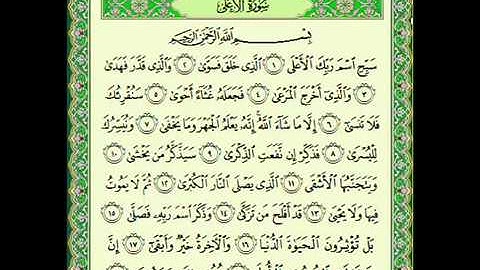 سُورَةُ الأَعْلَى
بِسْمِ اللَّهِ الرَّحْمَٰنِ الرَّحِيمِ
سَبِّحِ اسْمَ رَبِّكَ الْأَعْلَى ١ الَّذِي خَلَقَ فَسَوَّىٰ ٢ وَالَّذِي قَدَّرَ فَهَدَىٰ
٣ وَالَّذِي أَخْرَجَ الْمَرْعَىٰ ٤ فَجَعَلَهُ غُثَاءً أَحْوَىٰ ٥ سَنُقْرِئُكَ
فَلَا تَنسَىٰ ٦ إِلَّا مَا شَاءَ اللَّهُ إِنَّهُ يَعْلَمُ الْجَهْرَ وَمَا يَخْفَىٰ ٧ وَنُيَسِّرُكَ
لِلْيُسْرَىٰ ٨ فَذَكِّرْ إِن نَّفَعَتِ الذِّكْرَىٰ ٩ سَيَذَّكَّرُ مَن يَخْشَىٰ ١٠
وَيَتَجَنَّبُهَا الْأَشْقَى ١١ الَّذِي يَصْلَى النَّارَ الْكُبْرَىٰ ١٢ ثُمَّ لَا يَمُوتُ
فِيهَا وَلَا يَحْيَىٰ ١٣ قَدْ أَفْلَحَ مَن تَزَكَّىٰ ١٤ وَذَكَرَ اسْمَ رَبِّهِ فَصَلَّىٰ ١٥
بَلْ تُؤْثِرُونَ الْحَيَوٰةَ الدُّنْيَا ١٦ وَالْآخِرَةُ خَيْرٌ وَأَبْقَىٰ ١٧ إِنَّ